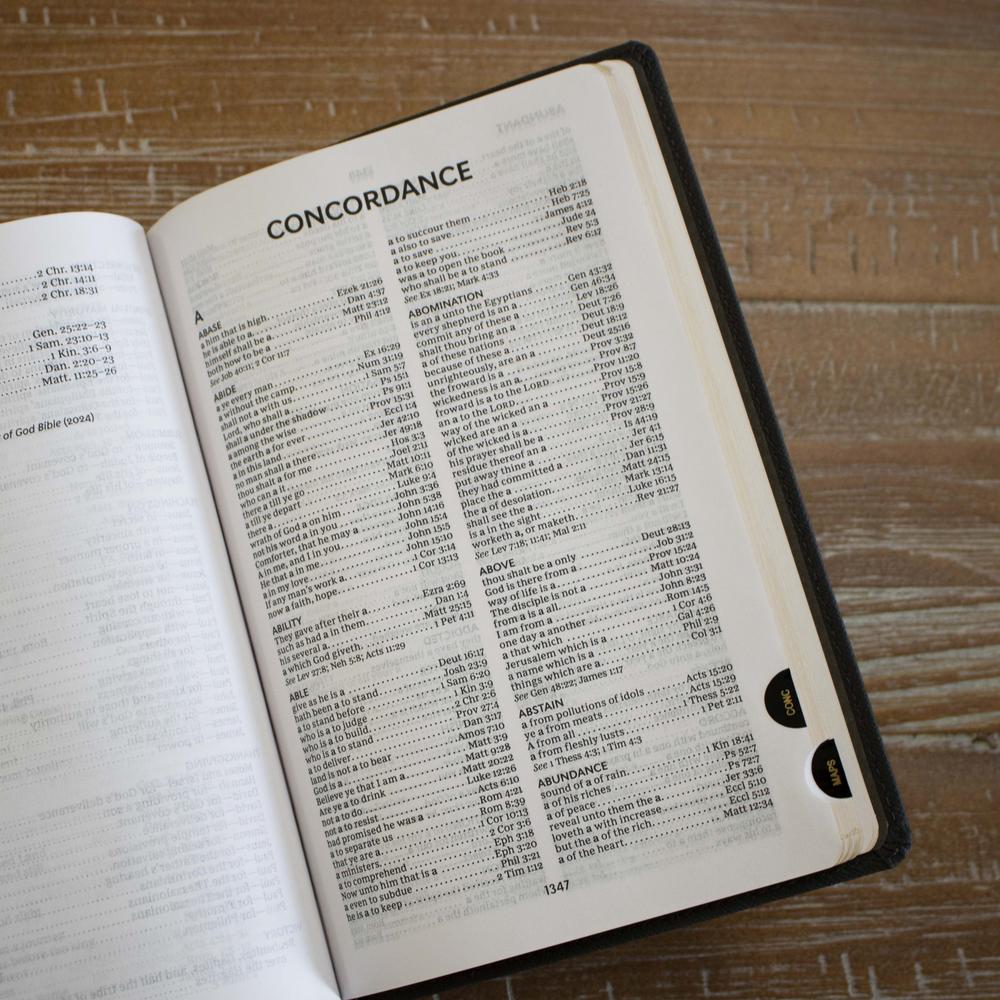 2 Chr. 13:14
2 Chr. 14:11
2 Chr. 18:31
Gen. 25:22–23
1 Sam. 23:10–13
1 Kin. 3:6–9
Dan. 2:20–23
Matt. 11:25–26
of God Bible (2024)
CONCORDANCE
A
ABASE
a him that is high Ezek 21:26
he is able to a Dan 4:37
himself shall be a Matt 23:12
both how to be a Phil 4:12
See Job 40:11; 2 Cor 11:7
ABIDE
a ye every man Ex 16:29
a without the camp Num 31:19
shall not a with us 1 Sam 5:7
Lord, who shall a Ps 15:1
shall a under the shadow Ps 91:1
a among the wise Prov 15:31
the earth a for ever Eccl 1:4
a in this land Jer 42:10
no man shall a there Jer 49:18
thou shalt a for me Hos 3:3
who can a it Joel 2:11
there a till ye go Matt 10:11
a till ye depart Mark 6:10
there a Luke 9:4
wrath of God a on him John 3:36
not his word a in you John 5:38
Comforter, that he may a John 14:16
A in me, and I in you John 15:4
He that a in me John 15:5
a in my love John 15:10
If any man's work a 1 Cor 3:14
now a faith, hope 1 Cor 13:13
ABILITY
They gave after their a Ezra 2:69
such as had a in them Dan 1:4
his several a Matt 25:15
a which God giveth 1 Pet 4:11
See Lev 27:8; Neh 5:8; Acts 11:29
ABLE
give as he is a Deut 16:17
hath been a to stand Josh 23:9
a to stand before 1 Sam 6:20
who is a to judge 1 Kin 3:9
who is a to build 2 Chr 2:6
who is a to stand Prov 27:4
a to deliver Dan 3:17
land is not a to bear Amos 7:10
God is a Matt 3:9
Believe ye that I am a Matt 9:28
Are ye a to drink Matt 20:22
not a to do Luke 12:26
not a to resist Acts 6:10
had promised he was a Rom 4:21
a to separate us Rom 8:39
that ye are a 1 Cor 10:13
a ministers 2 Cor 3:6
a to comprehend Eph 3:18
Now unto him that is a Eph 3:20
a even to subdue Phil 3:21
he is a to keep 2 Tim 1:12
a to succour them Heb 2:18
a also to save Heb 7:25
a to save James 4:12
a to keep you Jude 24
was a to open the book Rev 5:3
who shall be a to stand Rev 6:17
See Ex 18:21; Mark 4:33
ABOMINATION
is an a unto the Egyptians Gen 43:32
every shepherd is an a Gen 46:34
commit any of these a Lev 18:26
shalt thou bring an a Deut 7:26
a of these nations Deut 18:9
because of these a Deut 18:12
unrighteously, are an a Deut 25:16
the froward is a Prov 3:32
wickedness is an a Prov 8:7
froward is a to the LORD Prov 11:20
an a to the LORD Prov 15:8
way of the wicked an a Prov 15:9
wicked are an a Prov 15:26
of the wicked is a Prov 21:27
his prayer shall be a Prov 28:9
residue thereof an a Is 44:19
put away thine a Jer 4:1
they had committed a Jer 6:15
place the a Dan 11:31
the a of desolation Matt 24:15
shall see the a Mark 13:14
is a in the sight Luke 16:15
worketh a, or maketh Rev 21:27
See Lev 7:18; 11:41; Mal 2:11
ABOVE
thou shalt be a only Deut 28:13
God is there from a Job 31:2
way of life is a Prov 15:24
The disciple is not a Matt 10:24
from a is a all John 3:31
I am from a John 8:23
one day a another Rom 14:5
a that which 1 Cor 4:6
Jerusalem which is a Gal 4:26
a name which is a Phil 2:9
things which are a Col 3:1
See Gen 48:22; James 1:17
ABSTAIN
a from pollutions of idols Acts 15:20
ye a from meats Acts 15:29
A from all 1 Thess 5:22
a from fleshly lusts 1 Pet 2:11
See 1 Thess 4:3; 1 Tim 4:3
ABUNDANCE
sound of a of rain 1 Kin 18:41
a of his riches Ps 52:7
a of peace Ps 72:7
reveal unto them the a Jer 33:6
loveth a with increase Eccl 5:10
but the a of the rich Eccl 5:12
a of the heart Matt 12:34
1347
CONC
MAPS